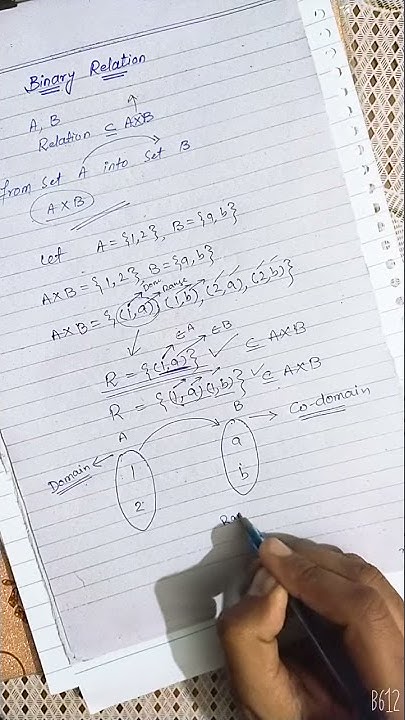 Binary Relation
A, B
Relation ⊆ A×B
From set A into set B
A×B
Let A = {1,2}, B = {a,b}
A×B = {1,2}, B = {a,b}
A×B = {(1,a), (1,b), (2,a), (2,b)}
∈A ∈B
R = {(1,a)} ✓ ⊆ A×B
R = {(1,a)(1,b)} ✓ ⊆ A×B
A B
Domain Co-domain
1 a
2 b
B612